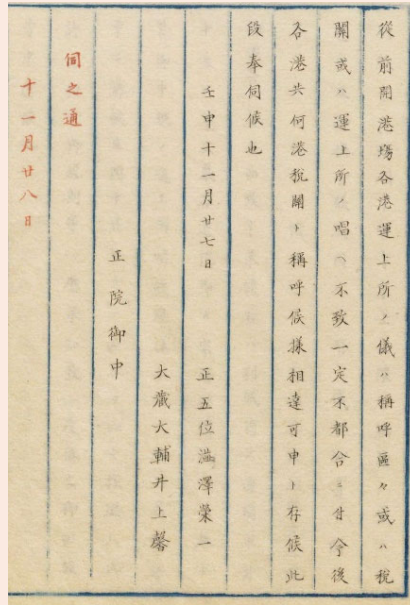 從前開港塲各港運上所ノ儀ハ稱呼區々或ハ稅
關或ハ運上所ノ唱ヘ不致一定不都合ニ付今後
各港共何港稅關ト稱呼候樣相達可申ト存候此
段奉伺候也
壬申十一月廿七日　正五位澁澤榮一
大藏大輔井上馨
正院御中
伺之通
十一月廿八日